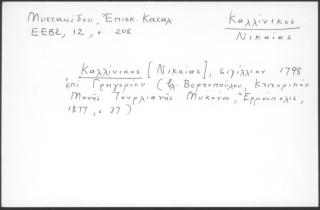 Μυστακίδου, Ἐπισκ. Καταλ
ΕΕΒΣ, 12, σ 208
Καλλίνικος
Νικαίας
Καλλίνικος [Νικαίας], σιγίλλιον 1798
ἐπὶ Γρηγορίου (βλ. Βερτοπούλου, Κτιτορικὸν
Μονῆς Τουρλιανῆς Μυκόνου, Ἑρμούπολις,
1877, σ. 37)